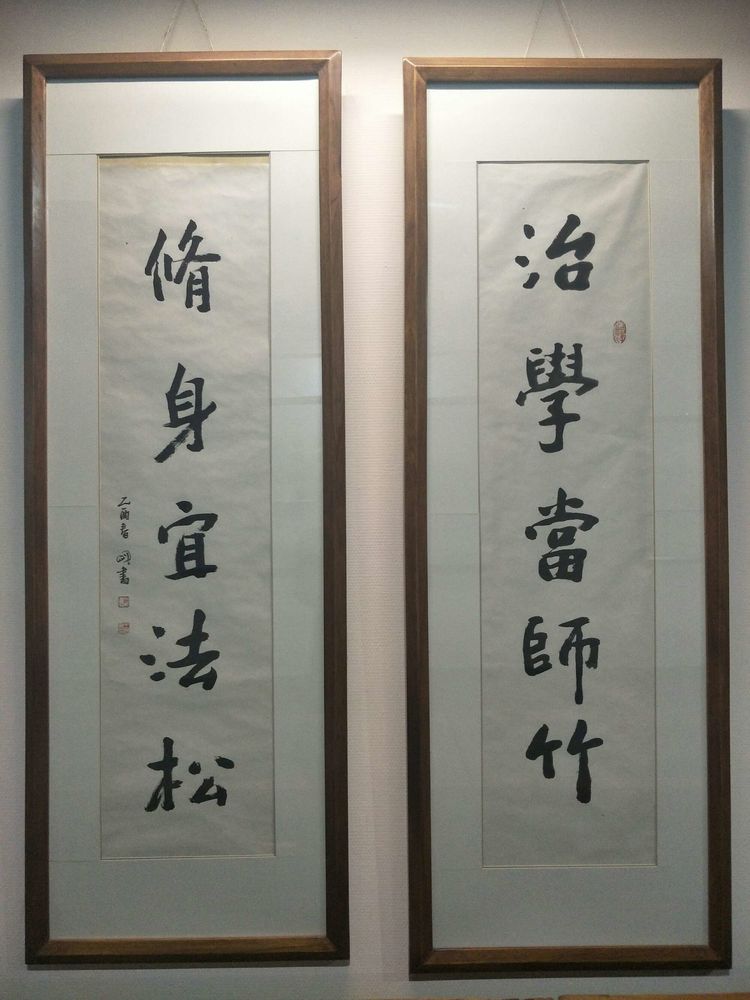 治學當師竹
脩身宜法松
乙酉春
書